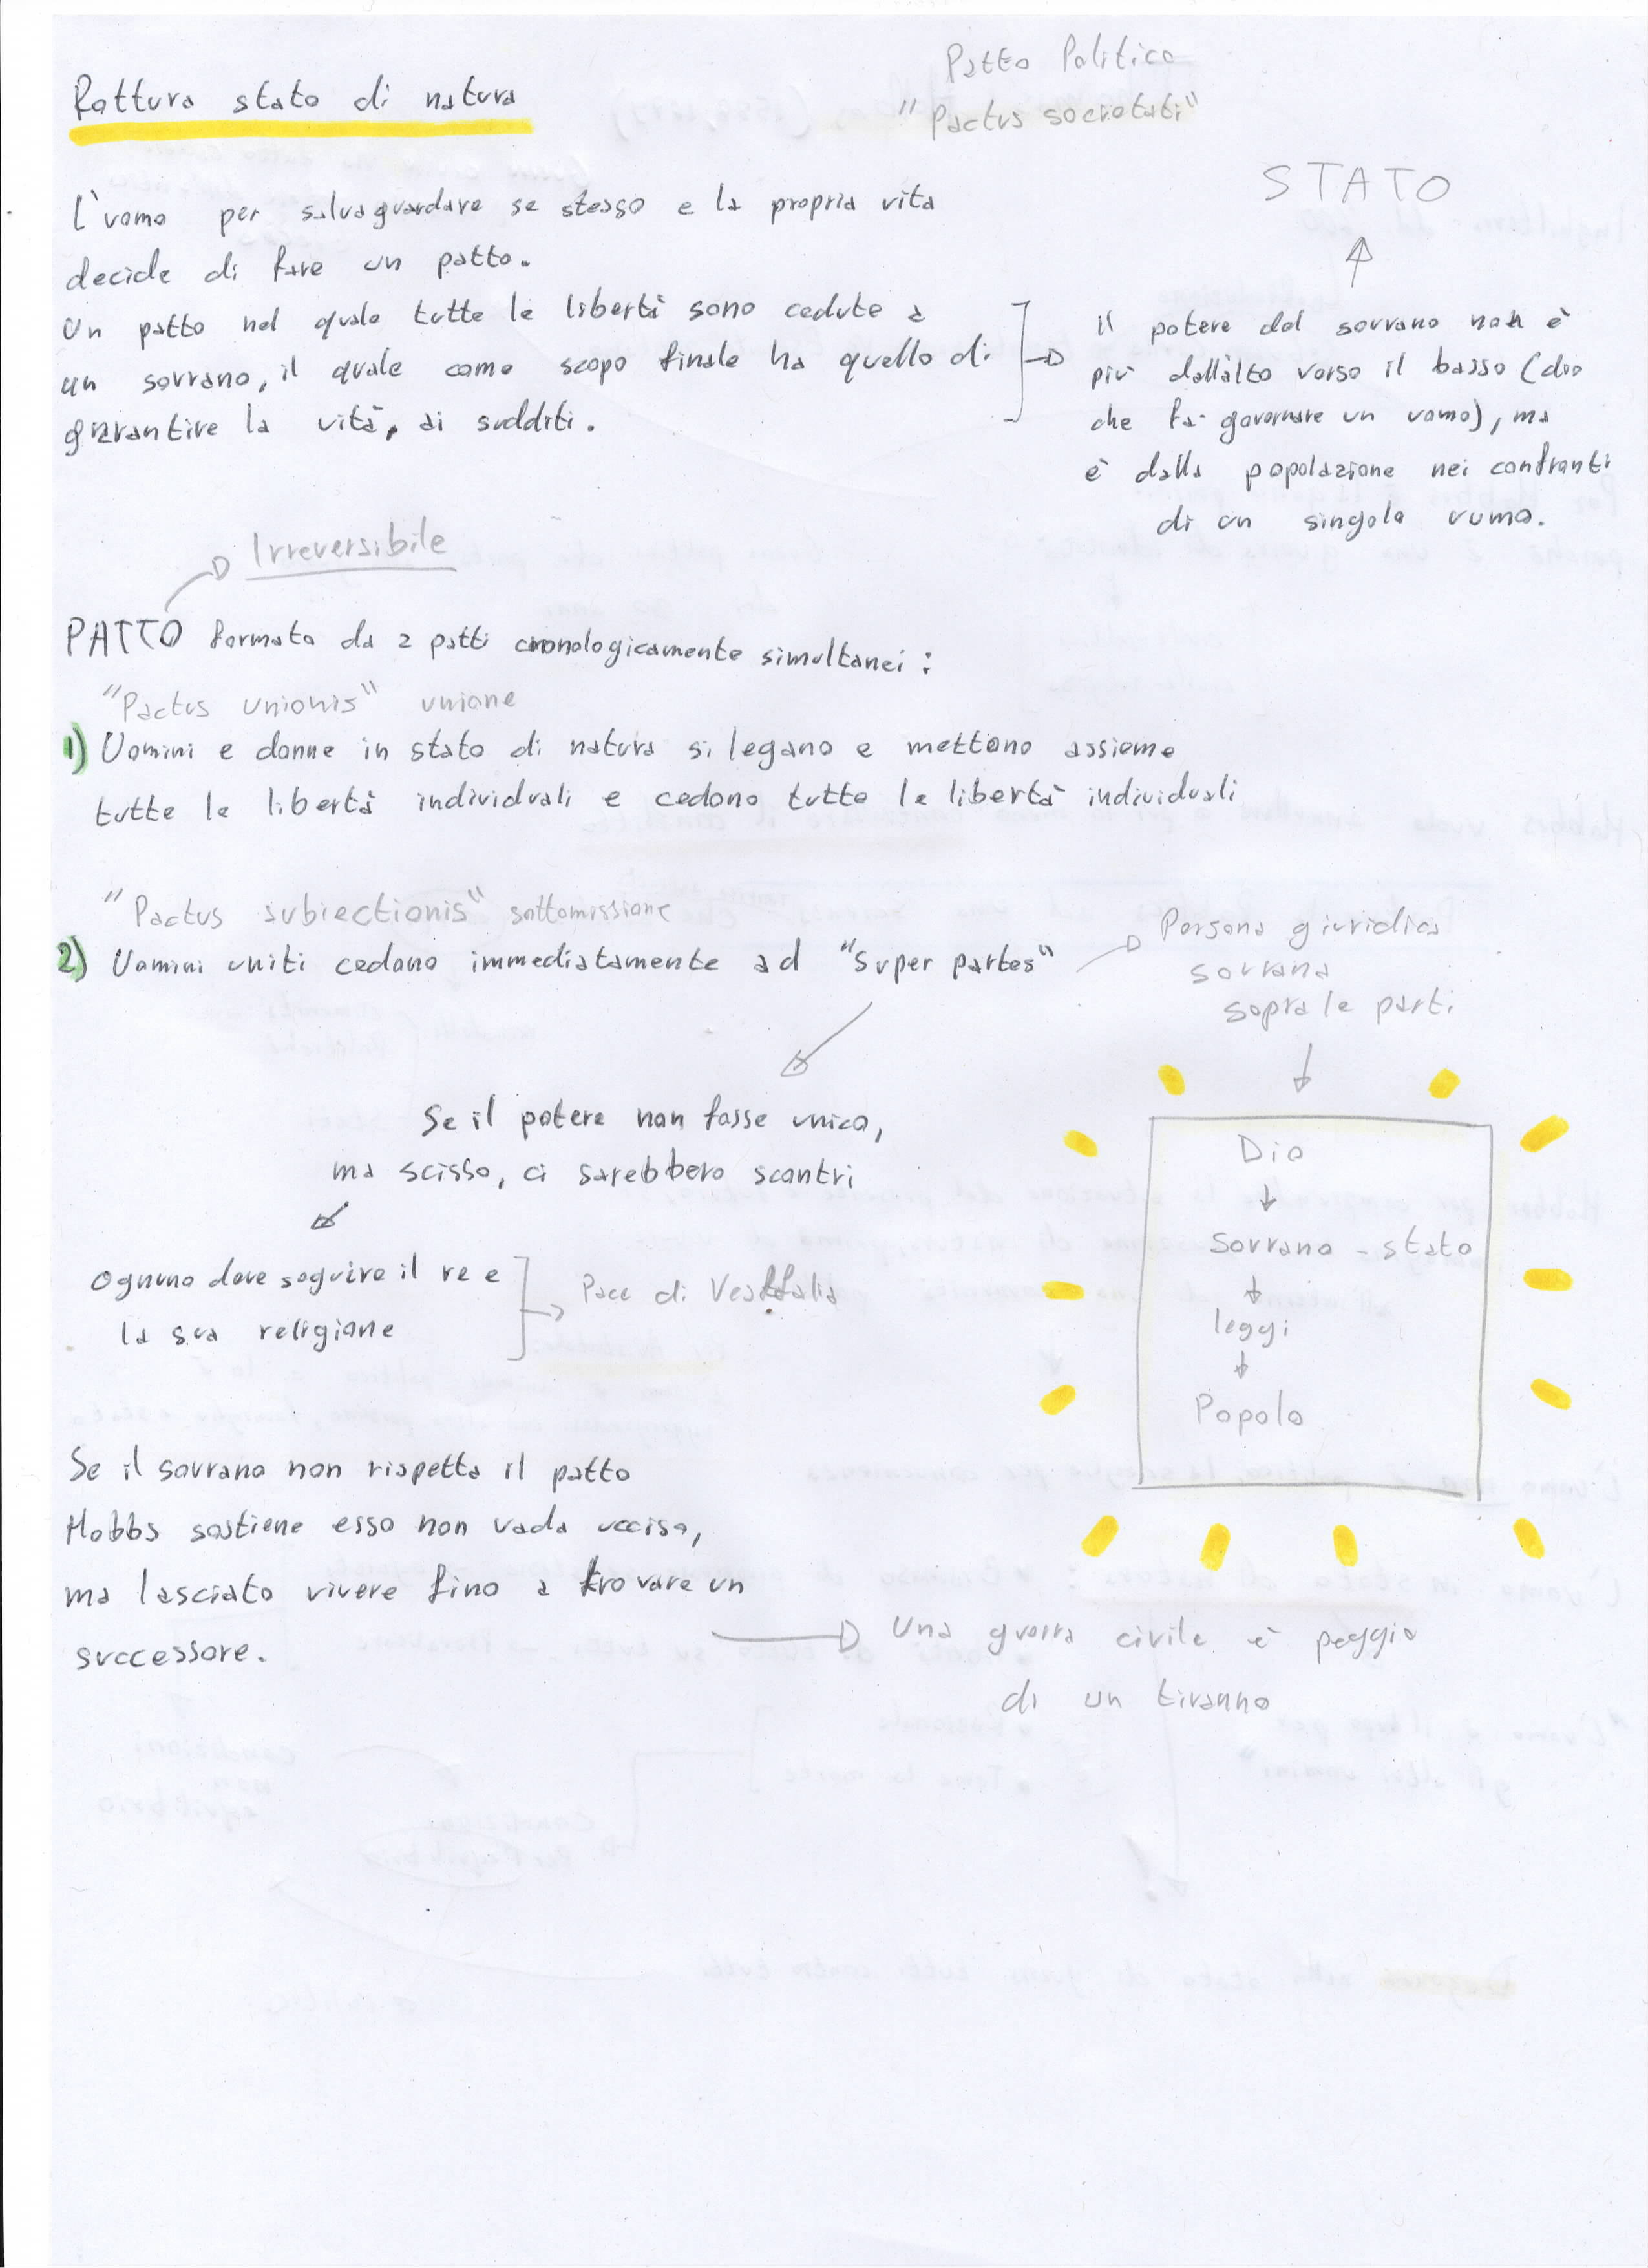 Rottura stato di natura
Patto Politico
"Pactus societati"
L'uomo per salvaguardare se stesso e la propria vita
decide di fare un patto.
Un patto nel quale tutte le libertà sono cedute a
un sovrano, il quale come scopo finale ha quello di
garantire la vità, ai sudditi.
STATO
il potere del sovrano non è
più dall'alto verso il basso (dio
che fa governare un uomo), ma
è dalla popolazione nei confronti
di un singolo uomo.
Irreversibile
PATTO formato da 2 patti cronologicamente simultanei:
"Pactus unionis" unione
1) Uomini e donne in stato di natura si legano e mettono assieme
tutte le libertà individuali e cedono tutte le libertà individuali
"Pactus subiectionis" sottomissione
2) Uomini uniti cedono immediatamente ad "Super partes"
Persona giuridica
sovrana
sopra le parti
Se il potere non fosse unico,
ma scisso, ci sarebbero scontri
Ognuno deve seguire il re e
la sua religione
Pace di Vestfalia
Dio
Sovrano - stato
leggi
Popolo
Se il sovrano non rispetta il patto
Hobbs sostiene esso non vada ucciso,
ma lasciato vivere fino a trovare un
successore.
Una guerra civile è peggio
di un tiranno